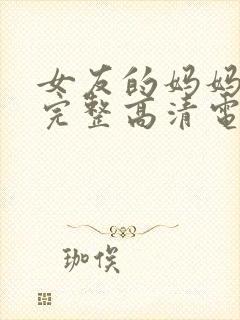 女友的妈妈
完整高清电
珈俟